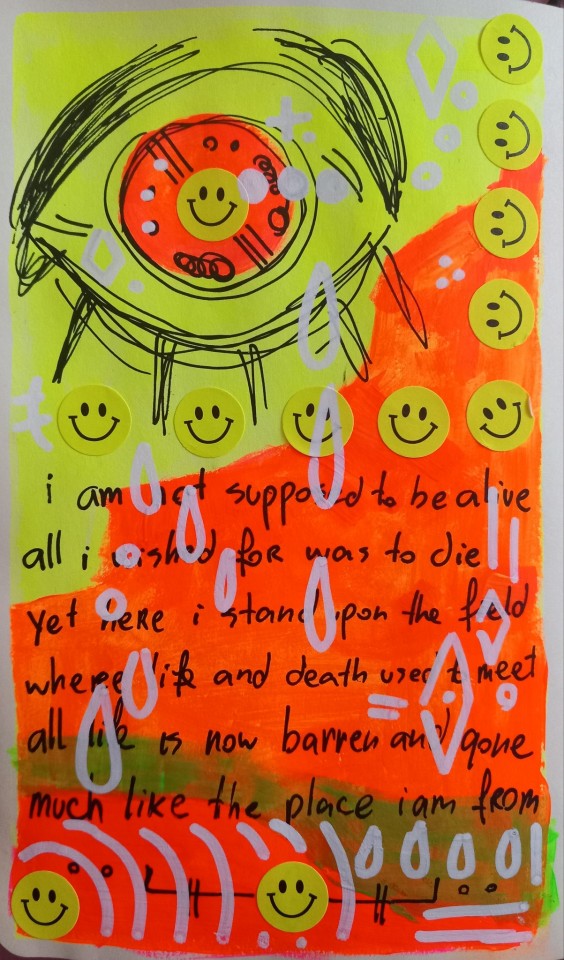 i am not supposed to be alive
all i wished for was to die
yet here i stand upon the field
where life and death used t meet
all life is now barren and gone
much like the place i am from